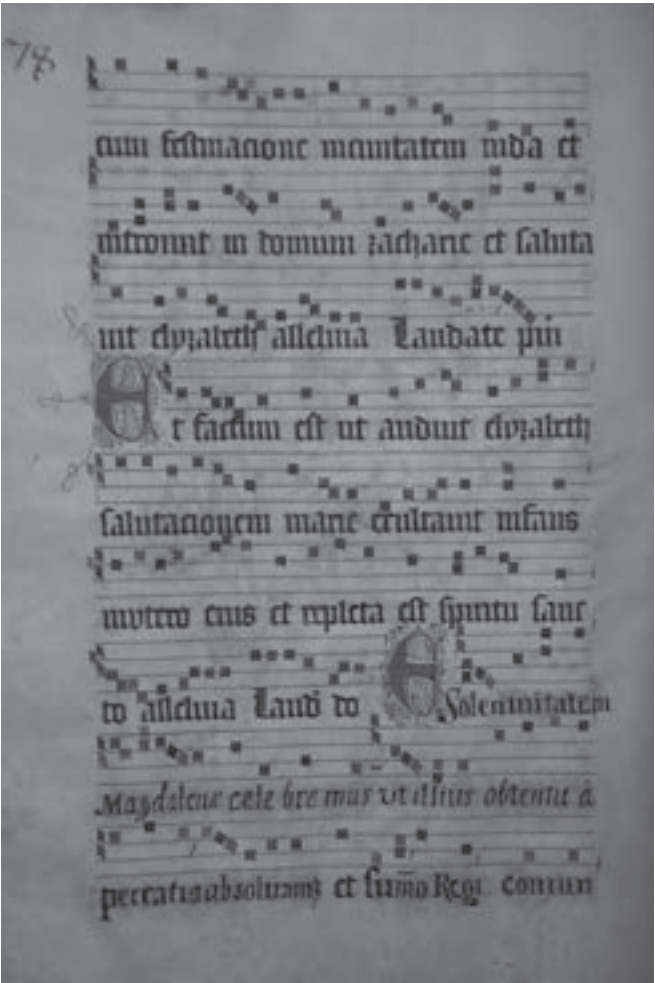 78
cum festinacione incivitatem iuda et
introivit in domum zacharie et saluta
vit elyzabeth alleluia Laudate pūi
Et factum est ut audivit elyzabeth
salutacionem marie exultavit infans
inutero eius et repleta est spiritu sanc
to alleluia Laud to Solemnitatem
Magdalene cele bre mus ut illius obtentu â
peccatis absolvam et sum̄o Regi coniun